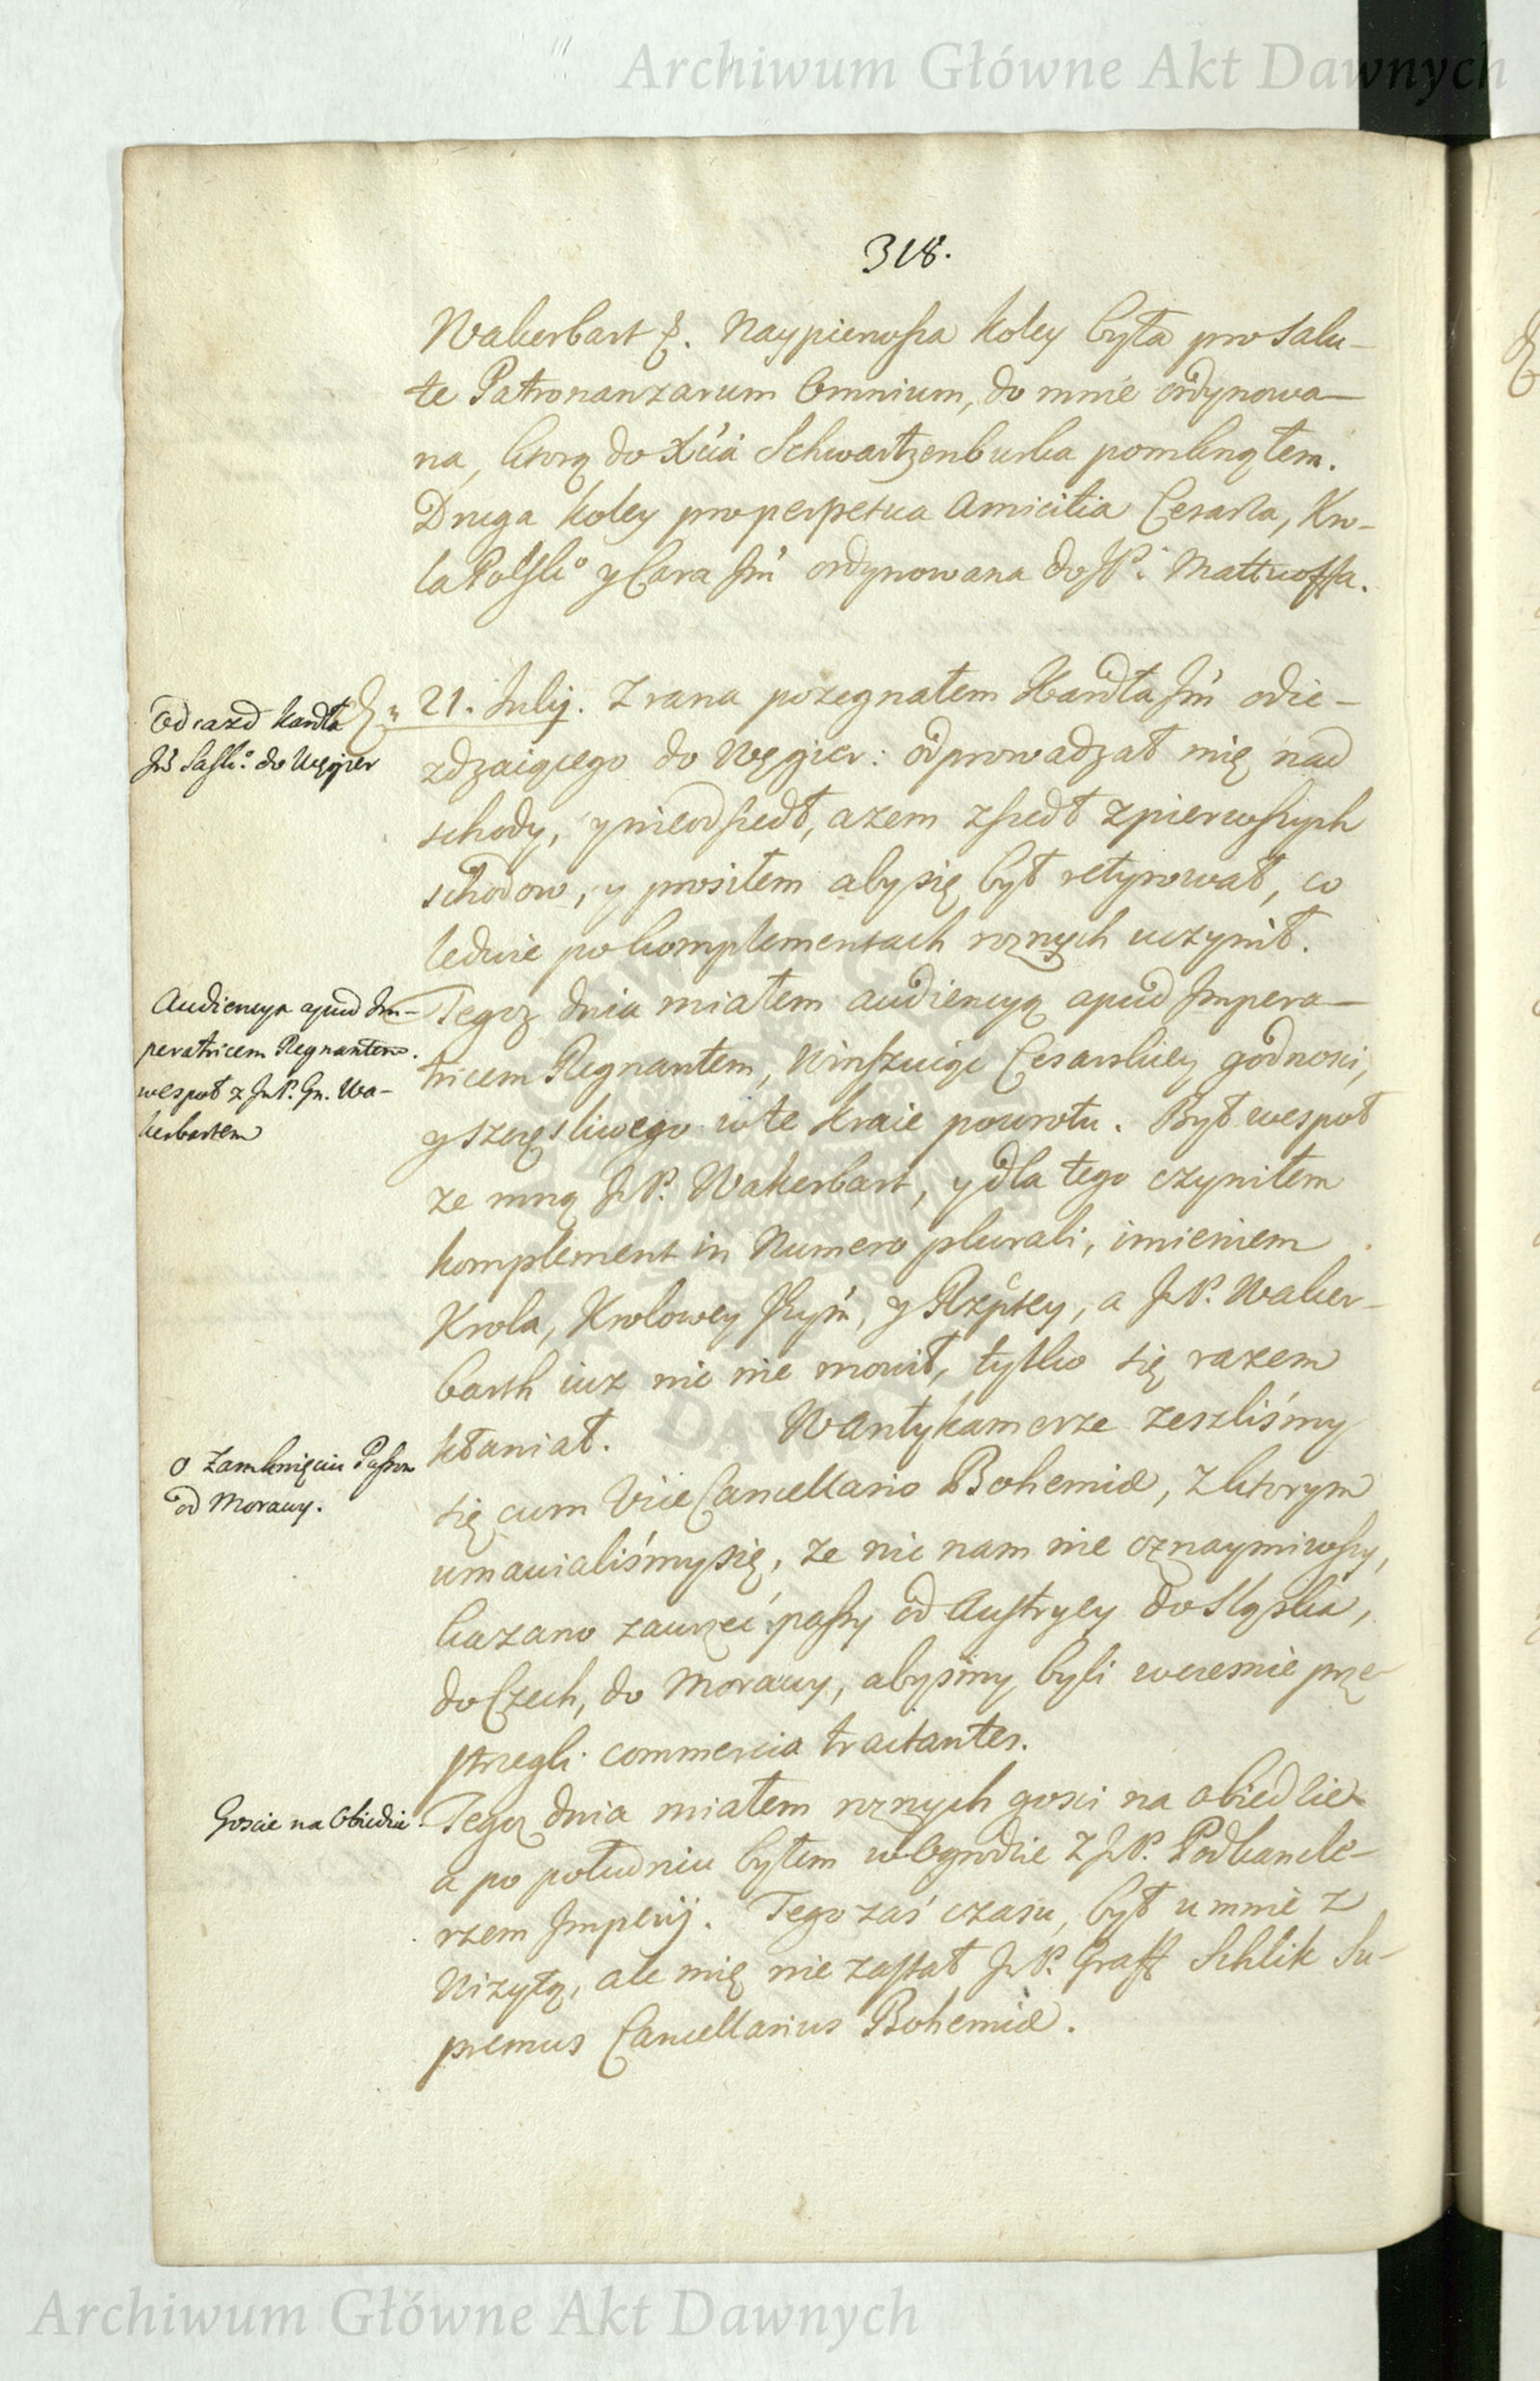 Archiwum Główne Akt Dawnych
318.
Wakerbart &. Naypierwsza koley była pro salu-
te Patronanzarum Omnium, do mnie ordynowa-
na, ktorą do Xcia Schwartzenburka pomknąłem.
Druga koley pro perpetua Amicitia Cesarza, Kro-
la Polskᵒ y Cara Jm̃ ordynowana do JP. Mattuoffa.
Odiazd Kardła
Jᵒ Saskᵒ do Węgier
21. Julij. Z rana pożegnałem Kardła Jm̃ odie-
zdzaiącego do Węgier: odprowadzał mię nad
schody, y nieodszedł, azem zszedł z pierwszych
schodow, y prosiłem aby się był retyrował, co
ledwie po komplementach roznych uczynił.
Audiencya apud Im-
peratricem Regnantem.
wespoł z JmP. Gn. Wa-
kerbartem
Tegoz dnia miałem audiencyą apud Impera-
tricem Regnantem, Winszuiąc Cesarskiey godności,
y szczęsliwego w te kraie powrotu. Był wespoł
ze mną JP. Wakerbart, y dla tego czyniłem
komplement in Numero plurali, imieniem
Krola, Krolowey Jchm̃, y Rzpltey, a JP. Waker-
barth iuz nic nie mowił, tylko się razem
kłaniał. W Antykamerze zeszliśmy
o Zamknięciu Passow
od Morawy.
się cum Vice Cancellario Bohemiæ, z ktorym
umawialiśmy się, ze nic nam nie oznaymiwszy,
kazano zawrzeć passy od Austryey do Sląska,
do Czech, do Morawy, abyśmy byli wczesnie prze-
strzegli commercia tractantes.
Goscie na Obiedzie.
Tegoz dnia miałem roznych gosci na obiedzie
a po południu byłem w Ogrodzie z JP. Podkancle-
rzem Imperij. Tego zaś czasu, był u mnie z
Wizytą, ale mię nie zastał JP. Graff Schlik Su-
premus Cancellarius Bohemiæ.
Archiwum Główne Akt Dawnych